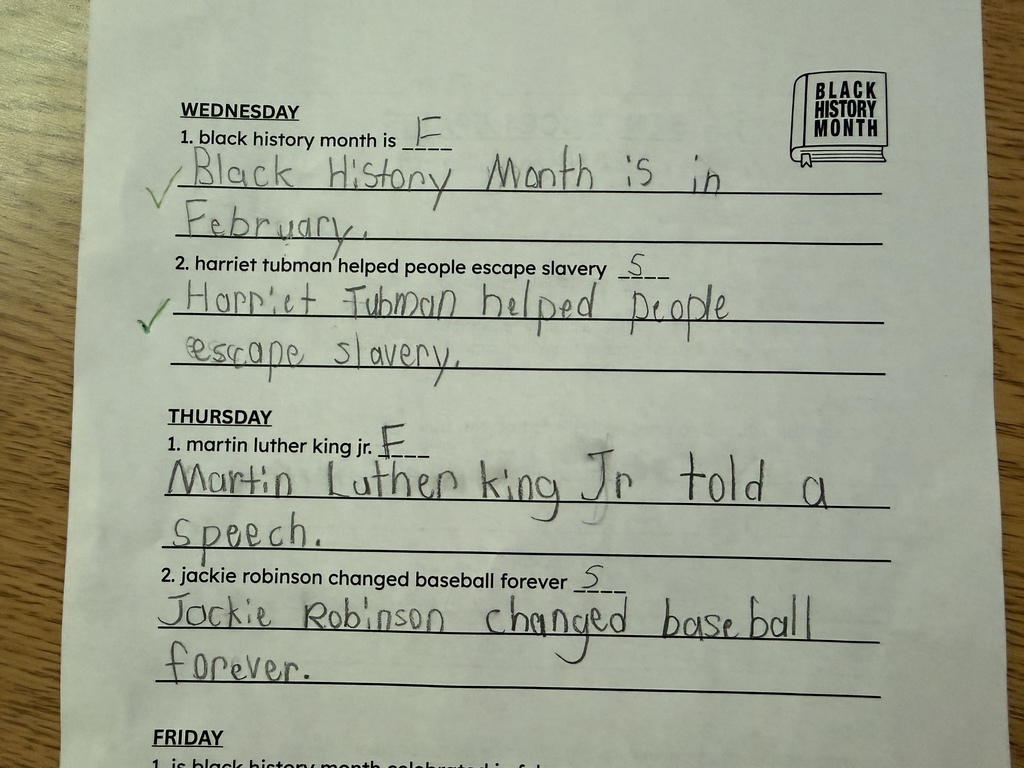 BLACK
HISTORY
MONTH
WEDNESDAY
1. black history month is F
Black History Month is in
February.
2. harriet tubman helped people escape slavery S
Harriet Tubman helped people
escape slavery.
THURSDAY
1. martin luther king jr. F
Martin Luther king Jr told a
speech.
2. jackie robinson changed baseball forever S
Jackie Robinson changed baseball
forever.
FRIDAY
1. is black history month celebrated in